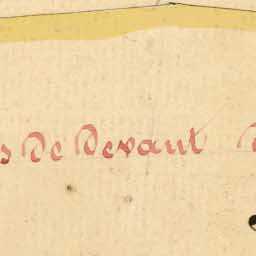 s De Devant